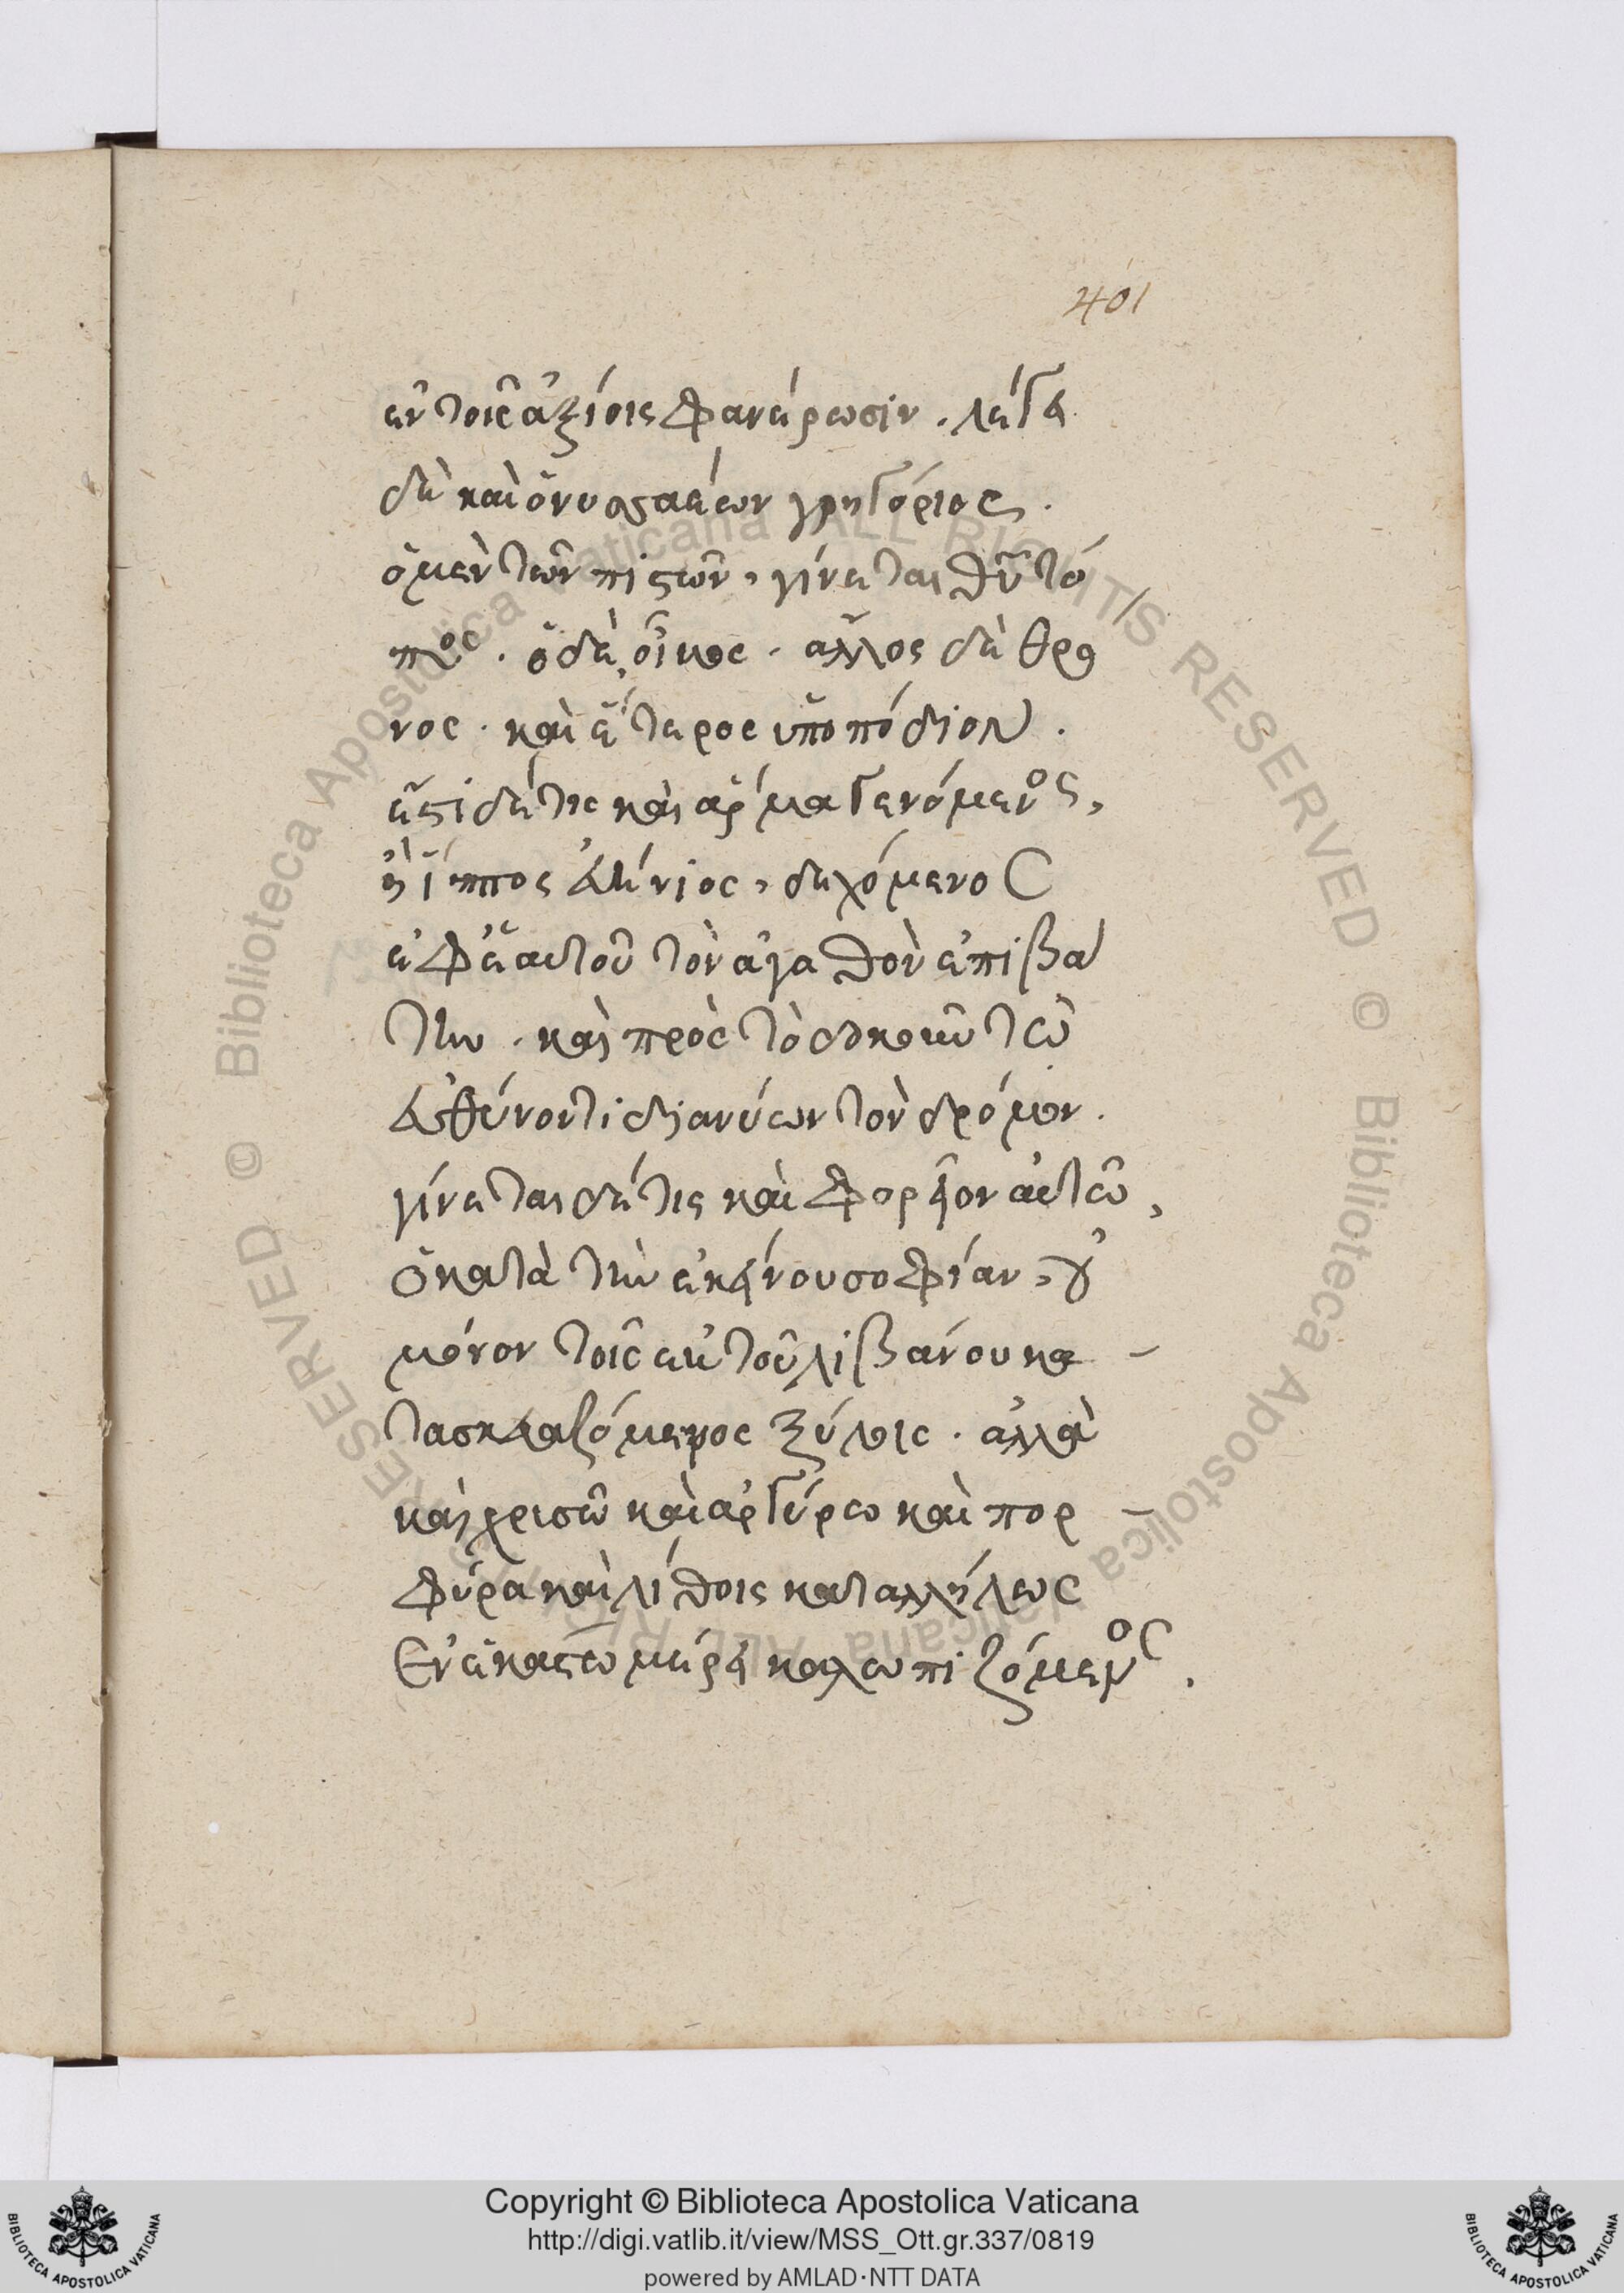 401
ἐν τοῖς ἀξίοις φανέρωσιν. λέγει
δὲ καὶ ὁ νυσσαέων γρηγόριος.
ὁ μὲν τῶν πιστῶν, γίνεται θῦ τό
πος. ὁ δὲ, οἶκος. ἄλλος δὲ θρο
νος. καὶ ἕτερος ὑποπόδιον.
ἔστι δέ τις καὶ ἅρμα γενόμενος,
ἢ ἵππος εὐήνιος, δεχόμενος
ἐφ ἑαυτοῦ τὸν ἀγαθὸν ἐπιβά
την. καὶ πρὸς τὸ δοκοῦν τῶ
εὐθύνοντι διανύων τὸν δρόμον.
γίνεται δέ τις καὶ φορεῖον αὐτῶ,
ὁ κατὰ τὴν ἐκείνου σοφίαν, οὐ
μόνον τοῖς ἐκ τοῦ λιβάνου κα-
τασκευαζόμενος ξύλοις. ἀλλὰ
καὶ χρισῶ καὶ ἀργύρω καὶ πορ-
φύρα καὶ λίθοις καταλλήλως
Ἐν ἑκάστω μέρει καλωπιζόμενος.
Copyright © Biblioteca Apostolica Vaticana
http://digi.vatlib.it/view/MSS_Ott.gr.337/0819
powered by AMLAD·NTT DATA
BIBLIOTECA APOSTOLICA VATICANA
BIBLIOTECA APOSTOLICA VATICANA
© Biblioteca Apostolica Vaticana ALL RIGHTS RESERVED
© Biblioteca Apostolica Vaticana ALL RIGHTS RESERVED